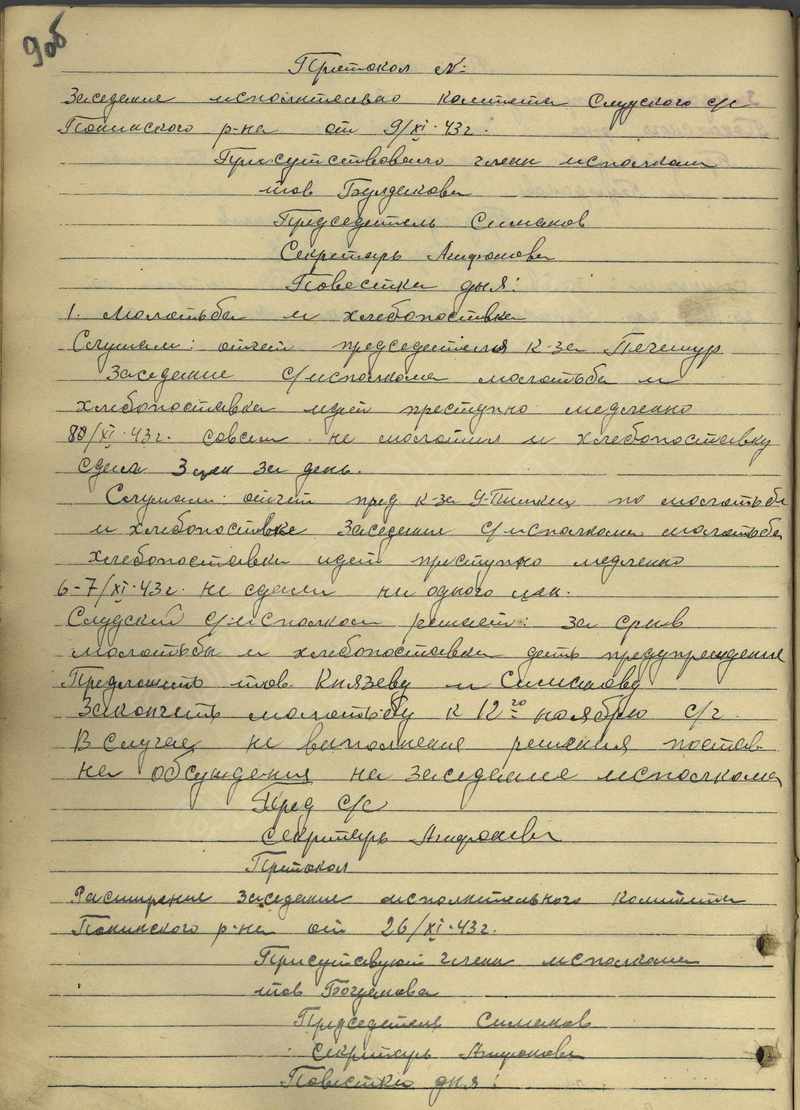 9об
Протокол №:
Заседание исполнительво комитета Слудского с/с
Понинского р-на от 9/XI-43 г.
Присутствовало члены исполкома
тов Булдакова
Председатель Симаков
Секретарь Агафонова
Повестка дня:
1. Молотьба и хлебопоставка
Слушали: отчет председателя к-за Печешур
Заседание с/исполкома молотьба и
хлебопоставка идет преступно медленно
8/XI-43 г. совсем не молотил и хлебопоставку
сдал 3 цен за день.
Слушали: отчет пред к-за по молотьбе
и хлебопоставке Заседание с/исполкома молотьба
хлебопоставки идет преступно медленно
6-7/XI-43 г. не сдали ни одного цен.
Слудский с/исполком решает: за срыв
молотьбы и хлебопоставки дать предупреждение
Предложить тов. Князеву и Симакову
Закончить молотьбу к 12го ноябрю с/г.
В случае не выполнение решения постав
на обсуждения на заседание исполкома
Пред с/с
Секретарь Агафонова
Протокол
Расширение заседание исполнительного комитета
Понинского р-на от 26/XI-43 г.
Присутвуют члены исполкома
тов Богданова
Председатель Симаков
Секритарь Агафонова
Повестка дня: